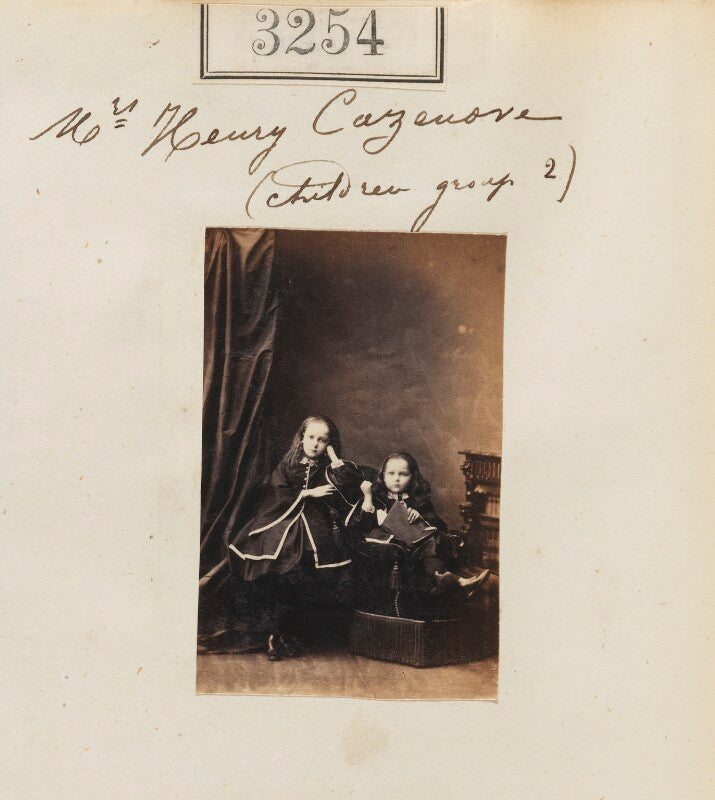 3254
Mrs Henry Cazenove
(Children group 2)